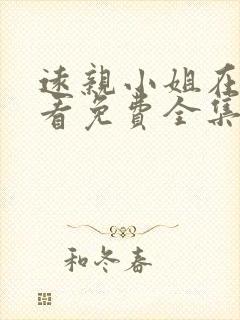 速親小姐在
看免費全集
和冬春